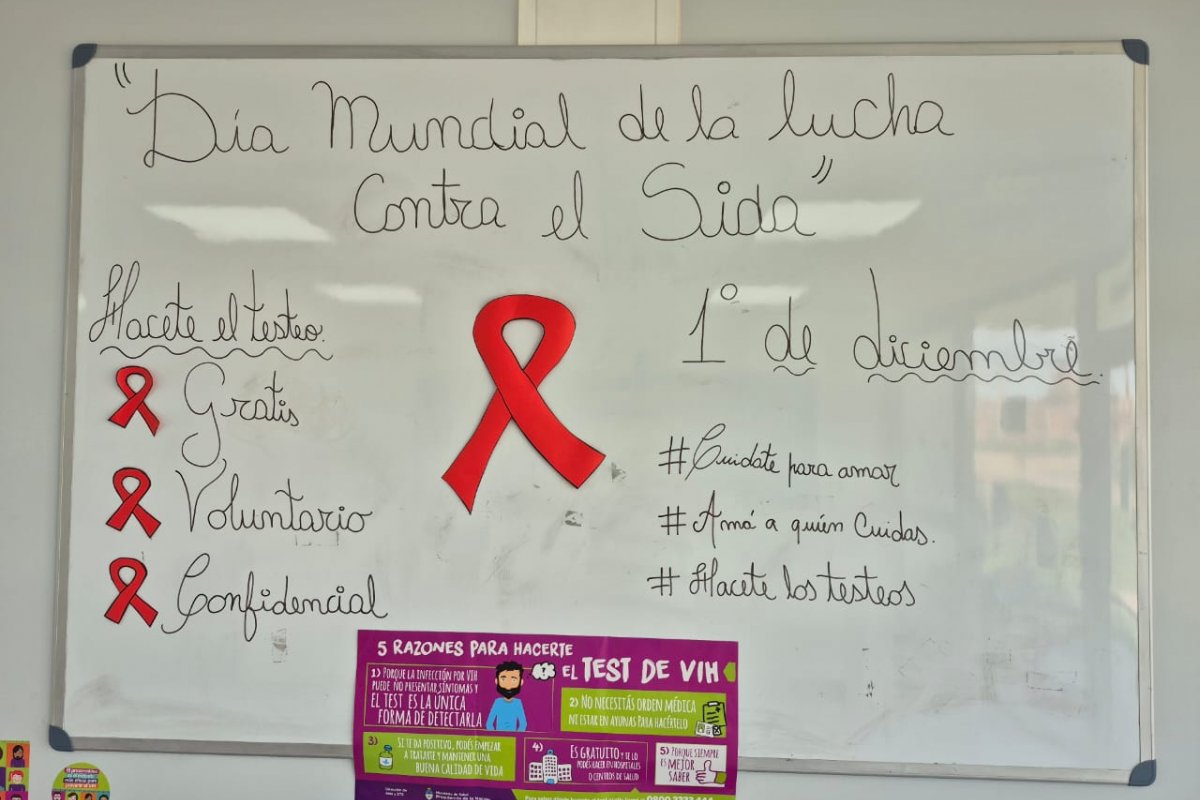 "Día Mundial de la lucha
Contra el Sida"
Hacete el testeo.
Gratis
Voluntario
Confidencial
1° de diciembre.
#Cuidate para amar
#Amá a quién Cuidas.
#Hacete los testeos
5 RAZONES PARA HACERTE
EL TEST DE VIH
1) PORQUE LA INFECCIÓN POR VIH
PUEDE NO PRESENTAR SÍNTOMAS Y
EL TEST ES LA ÚNICA
FORMA DE DETECTARLA
2) NO NECESITÁS ORDEN MÉDICA
NI ESTAR EN AYUNAS PARA HACÉRTELO
3) SI TE DA POSITIVO, PODÉS EMPEZAR
A TRATARTE Y MANTENER UNA
BUENA CALIDAD DE VIDA
4) ES GRATUITO Y TE LO
PODÉS HACER EN HOSPITALES
O CENTROS DE SALUD
5) PORQUE SIEMPRE
ES MEJOR
SABER